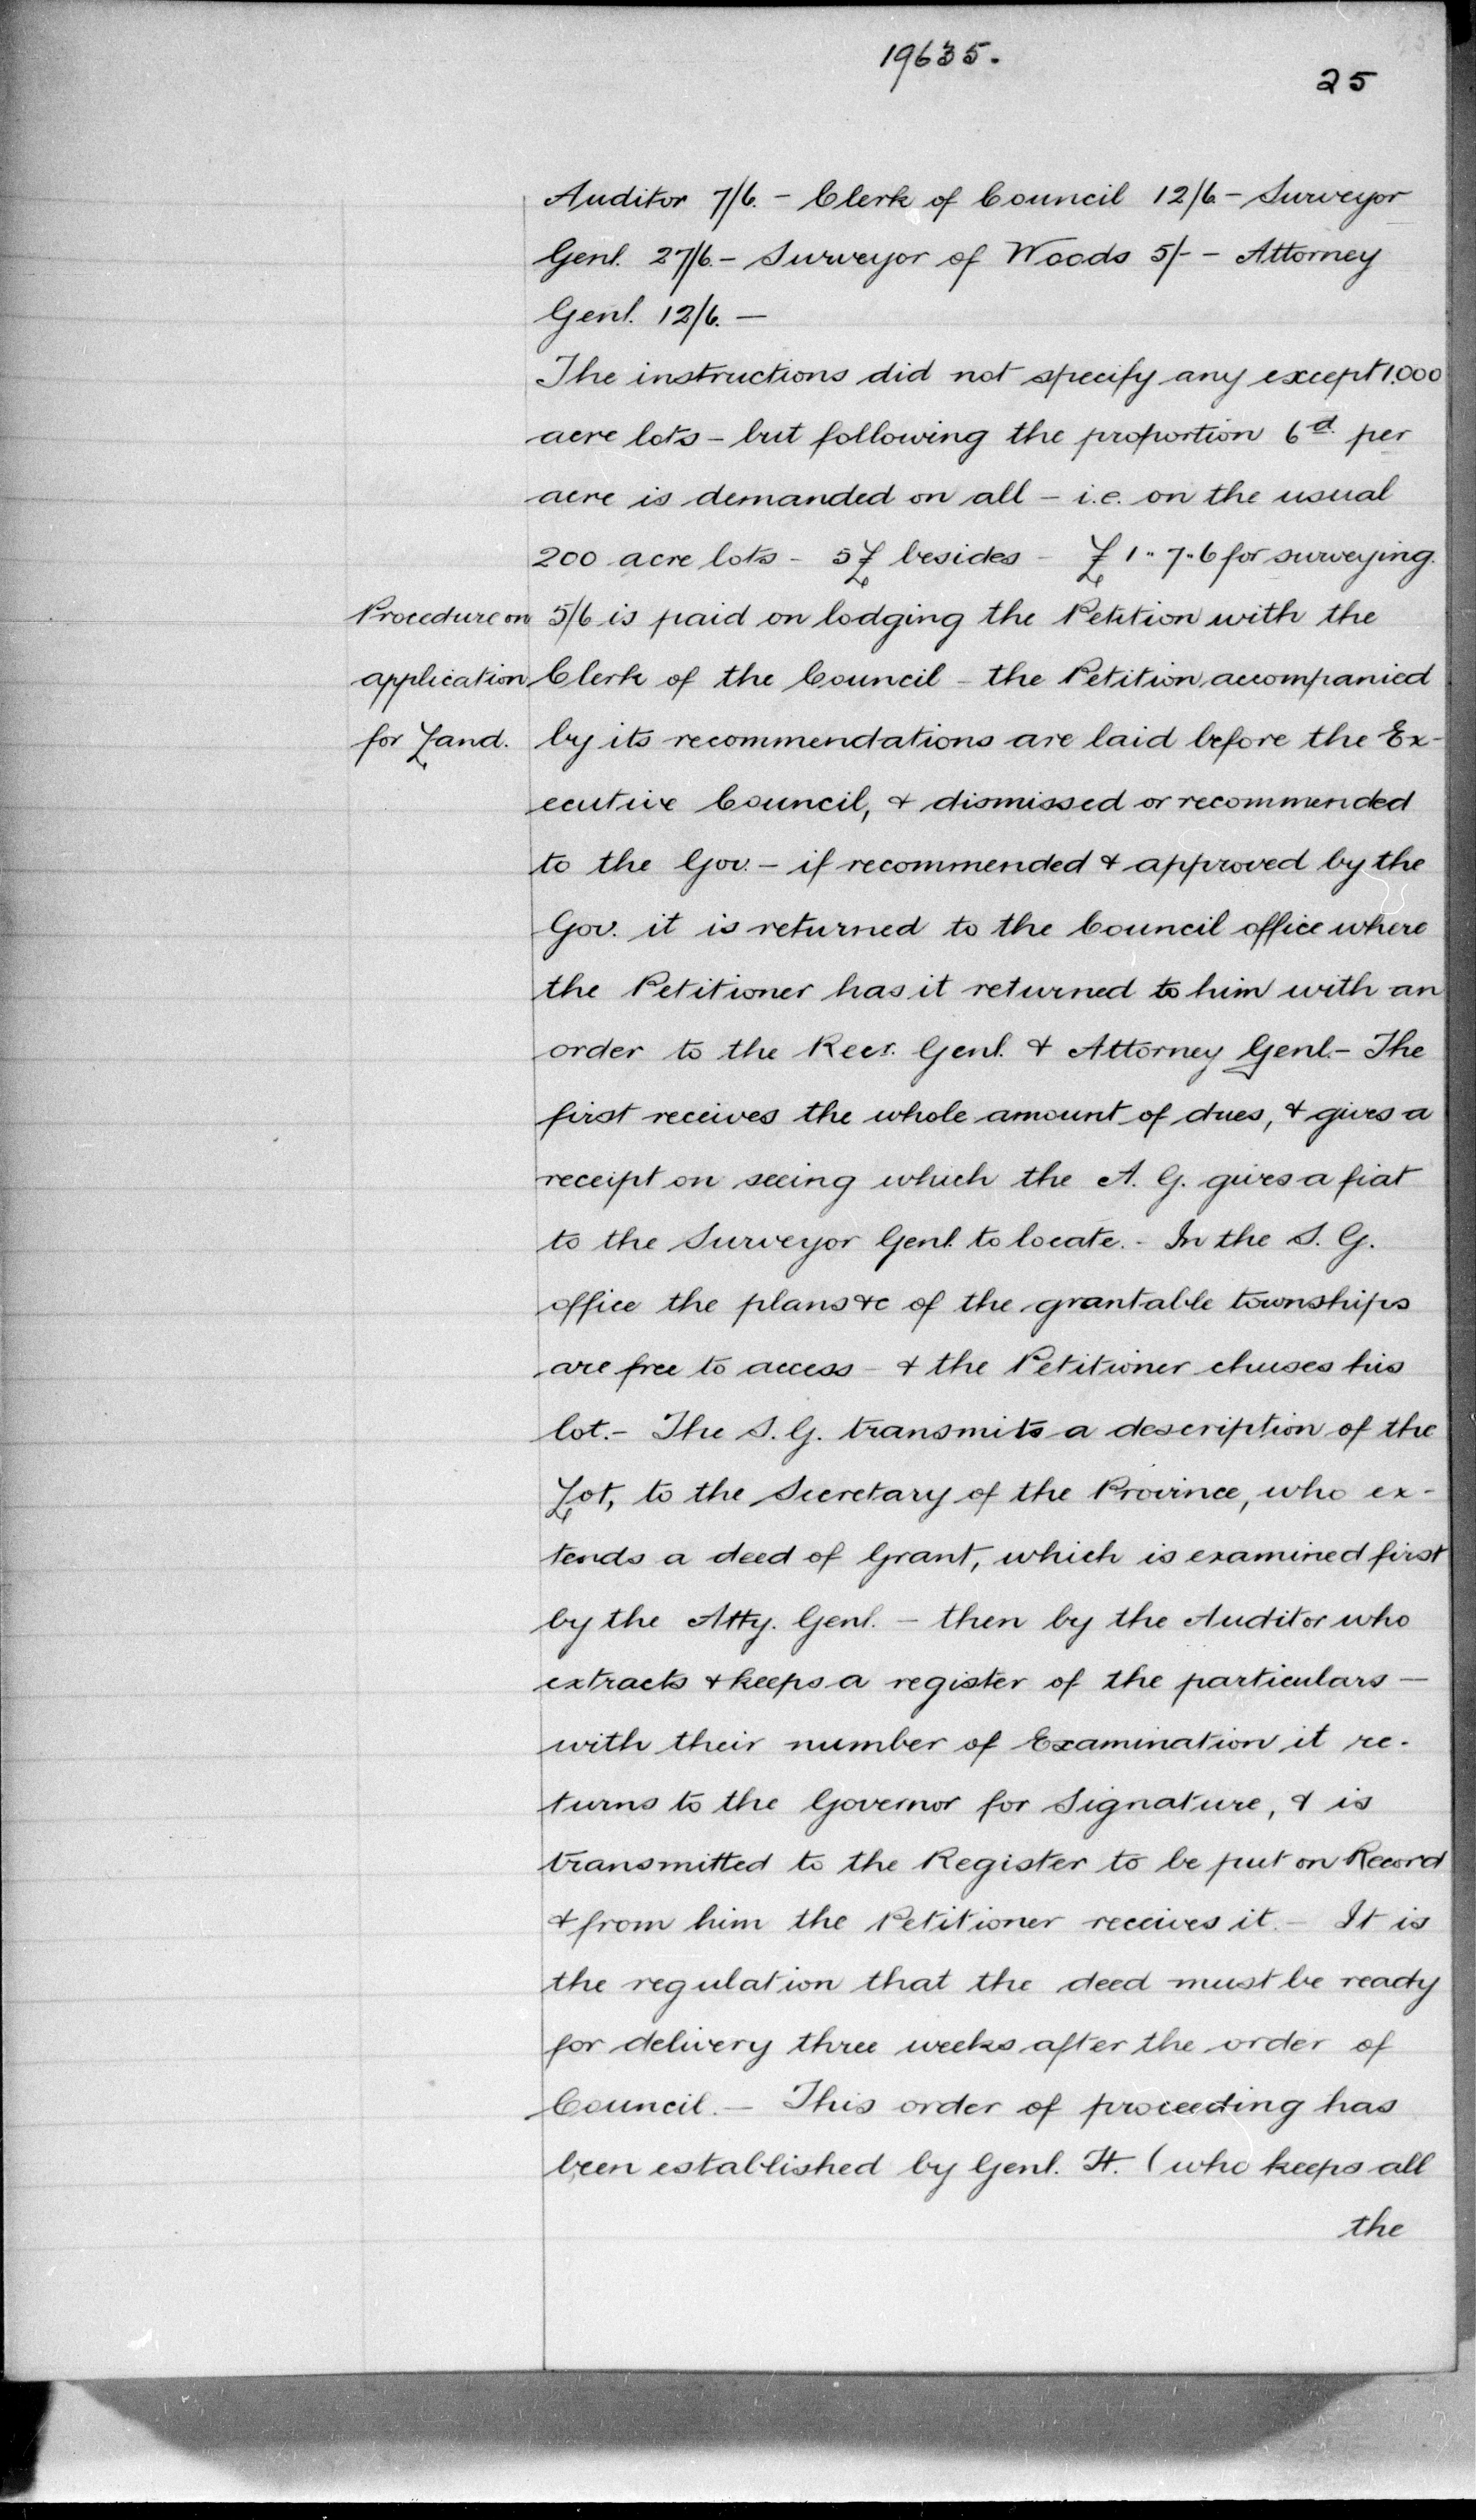 19635.
25
Auditor 7/6. - Clerk of Council 12/6 - Surveyor
Genl. 27/6. - Surveyor of Woods 5/- - Attorney
Genl. 12/6. -
The instructions did not specify any except 1.000
acre lots - but following the proportion 6d. per
acre is demanded on all - i.e. on the usual
200 acre lots - 5£ besides - £1..7..6 for surveying.
Procedure on
application
for Land.
5/6 is paid on lodging the Petition with the
Clerk of the Council - the Petition accompanied
by its recommendations are laid before the Ex-
ecutive Council, & dismissed or recommended
to the Gov. - if recommended & approved by the
Gov. it is returned to the Council office where
the Petitioner has it returned to him with an
order to the Recr. Genl. & Attorney Genl. - The
first receives the whole amount of dues, & gives a
receipt on seeing which the A. G. gives a fiat
to the Surveyor Genl. to locate. - In the S. G.
office the plans &c of the grantable townships
are free to access - & the Petitioner chuses his
lot. - The S. G. transmits a description of the
Lot, to the Secretary of the Province, who ex-
tends a deed of Grant, which is examined first
by the Atty. Genl. - then by the Auditor who
extracts & keeps a register of the particulars -
with their number of Examination it re-
turns to the Governor for Signature, & is
transmitted to the Register to be put on Record
& from him the Petitioner receives it. - It is
the regulation that the deed must be ready
for delivery three weeks after the order of
Council. - This order of proceeding has
been established by Genl. H. (who keeps all
the